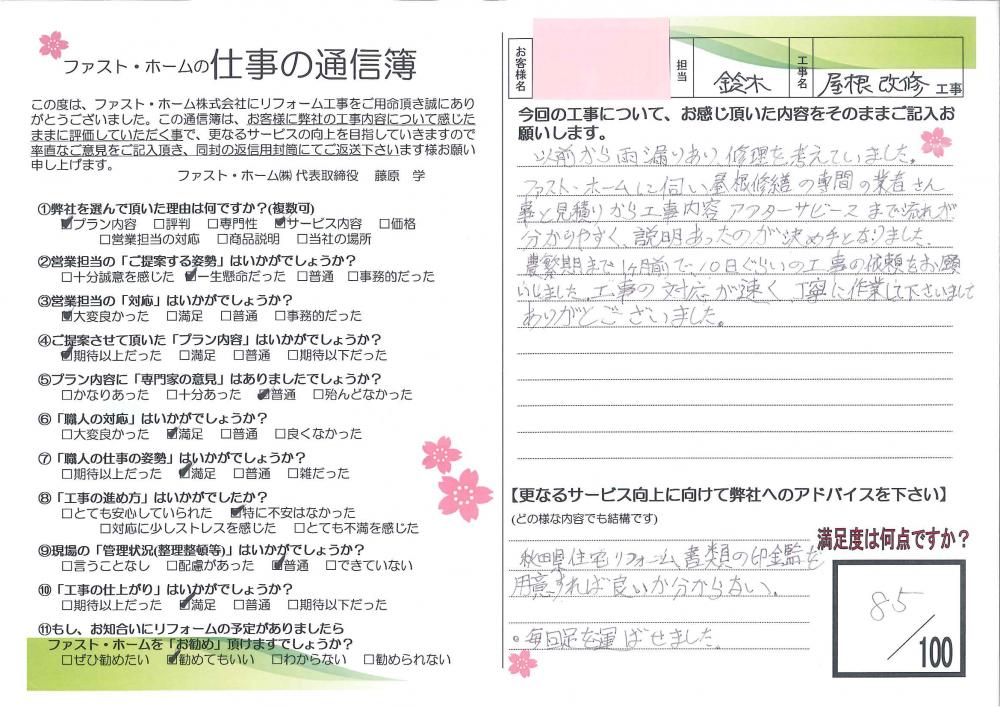 ファスト・ホームの仕事の通信簿
この度は、ファスト・ホーム株式会社にリフォーム工事をご用命頂き誠にあり
がとうございました。この通信簿は、お客様に弊社の工事内容について感じた
ままに評価していただく事で、更なるサービスの向上を目指していきますので
率直なご意見をご記入頂き、同封の返信用封筒にてご返送下さいます様お願い
申し上げます。
ファスト・ホーム㈱ 代表取締役 藤原 学
①弊社を選んで頂いた理由は何ですか?(複数可)
☑プラン内容 □評判 □専門性 ☑サービス内容 □価格
□営業担当の対応 □商品説明 □当社の場所
②営業担当の「ご提案する姿勢」はいかがでしょうか?
□十分誠意を感じた ☑一生懸命だった □普通 □事務的だった
③営業担当の「対応」はいかがでしょうか?
☑大変良かった □満足 □普通 □事務的だった
④ご提案させて頂いた「プラン内容」はいかがでしょうか?
☑期待以上だった □満足 □普通 □期待以下だった
⑤プラン内容に「専門家の意見」はありましたでしょうか?
□かなりあった □十分あった ☑普通 □殆んどなかった
⑥「職人の対応」はいかがでしょうか?
□大変良かった ☑満足 □普通 □良くなかった
⑦「職人の仕事の姿勢」はいかがでしょうか?
□期待以上だった ☑満足 □普通 □雑だった
⑧「工事の進め方」はいかがでしたか?
□とても安心していられた ☑特に不安はなかった
□対応に少しストレスを感じた □とても不満を感じた
⑨現場の「管理状況(整理整頓等)」はいかがでしょうか?
□言うことなし □配慮があった ☑普通 □できていない
⑩「工事の仕上がり」はいかがでしょうか?
□期待以上だった ☑満足 □普通 □期待以下だった
⑪もし、お知合いにリフォームの予定がありましたら
ファスト・ホームを「お勧め」頂けますでしょうか?
□ぜひ勧めたい ☑勧めてもいい □わからない □勧められない
お客様名 担当 鈴木 工事名 屋根改修 工事
今回の工事について、お感じ頂いた内容をそのままご記入お
願いします。
以前から雨漏りあり、修理を考えていました。
ファスト・ホームに伺い屋根修繕の専門の業者さん
事と見積りから工事内容 アフターサービースまで流れが
分かりやすく、説明あったのが決め手となりました。
農繁期まで1ヶ月前で、10日ぐらいの工事の依頼をお願
いしました。工事の対応が速く 丁寧に作業して下さいまして
ありがとございました。
【更なるサービス向上に向けて弊社へのアドバイスを下さい】
(どの様な内容でも結構です)
満足度は何点ですか?
秋田県住宅リフォーム書類の印鑑を
用意すれば良いか分からない。
・毎回足を運ばせました。
85/100